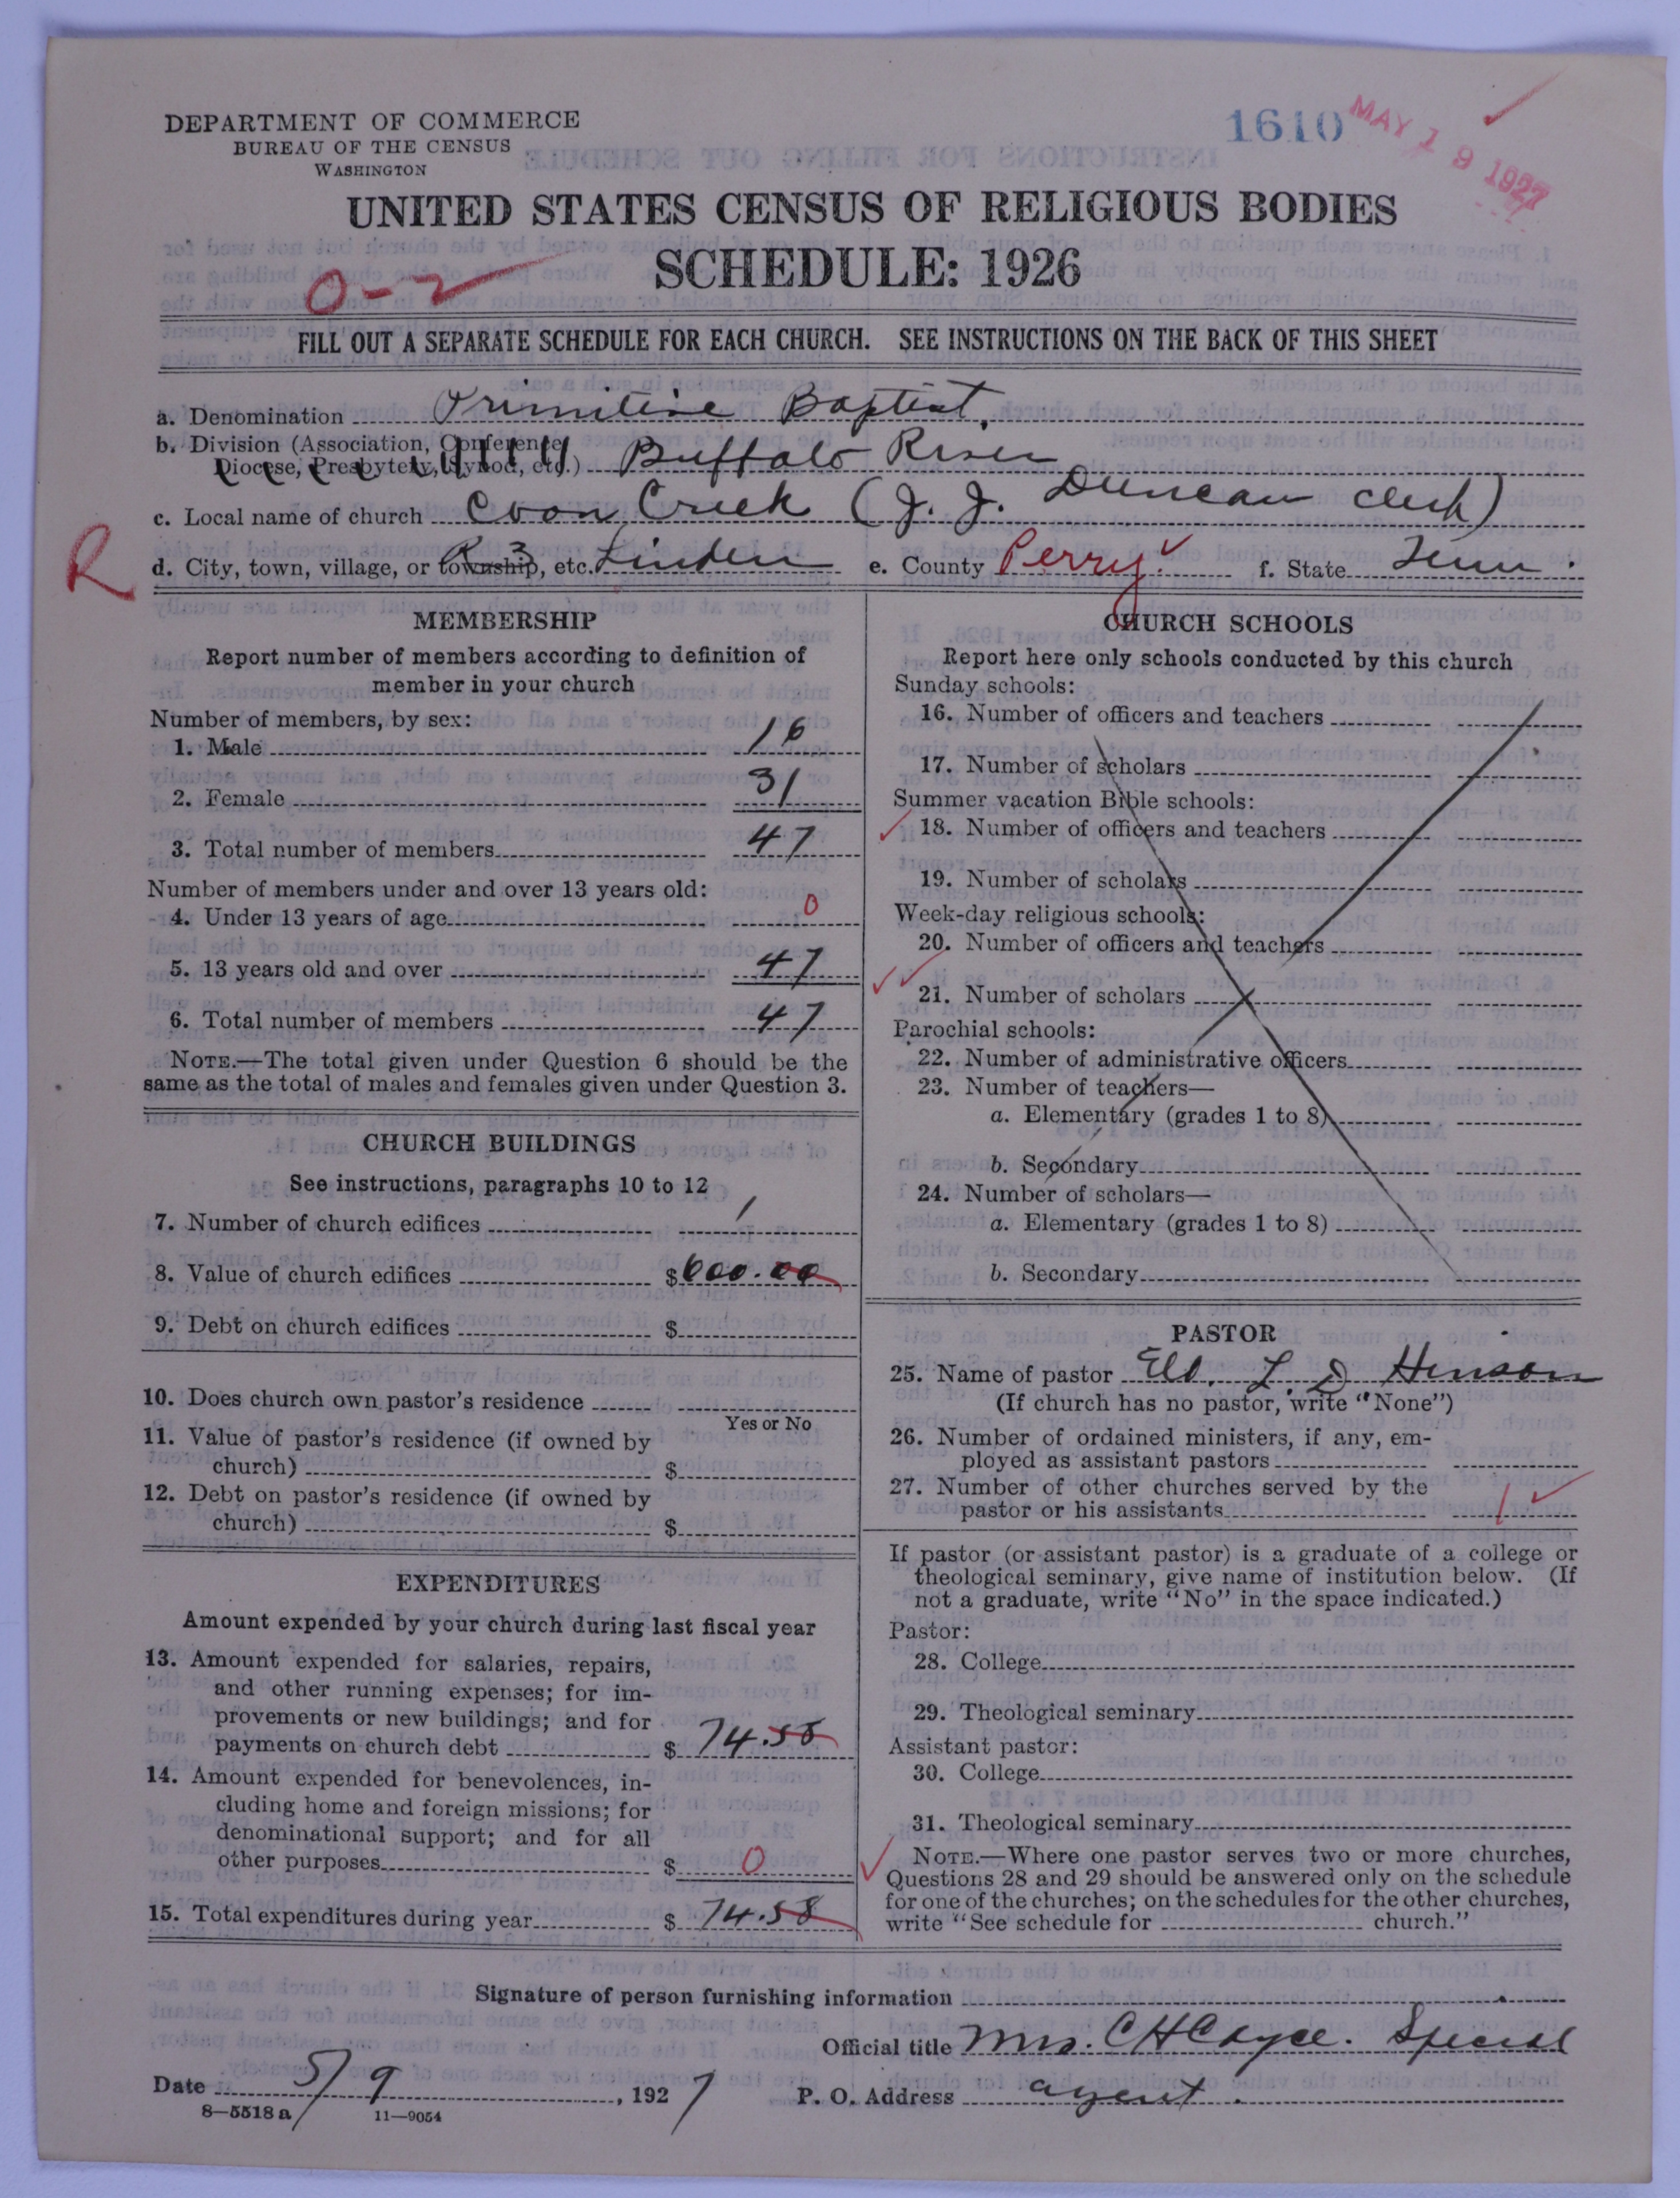 DEPARTMENT OF COMMERCE
BUREAU OF THE CENSUS
WASHINGTON
1610
MAY 19 1927
UNITED STATES CENSUS OF RELIGIOUS BODIES
SCHEDULE: 1926
0-2
FILL OUT A SEPARATE SCHEDULE FOR EACH CHURCH. SEE INSTRUCTIONS ON THE BACK OF THIS SHEET
a. Denomination Primitive Baptist
b. Division (Association, Conference,
Diocese, Presbytery, Synod, etc.) Buffalo River
c. Local name of church Coon Creek (J. J. Duncan Clerk)
R
d. City, town, village, or township, etc. R 3 Linden e. County Perry f. State Tenn.
MEMBERSHIP
Report number of members according to definition of
member in your church
Number of members, by sex:
1. Male 16
2. Female 31
3. Total number of members 47
Number of members under and over 13 years old:
4. Under 13 years of age 0
5. 13 years old and over 47
6. Total number of members 47
NOTE.—The total given under Question 6 should be the
same as the total of males and females given under Question 3.
CHURCH BUILDINGS
See instructions, paragraphs 10 to 12
7. Number of church edifices 1
8. Value of church edifices $600.00
9. Debt on church edifices $
10. Does church own pastor's residence
Yes or No
11. Value of pastor's residence (if owned by
church) $
12. Debt on pastor's residence (if owned by
church) $
EXPENDITURES
Amount expended by your church during last fiscal year
13. Amount expended for salaries, repairs,
and other running expenses; for im-
provements or new buildings; and for
payments on church debt $ 74.58
14. Amount expended for benevolences, in-
cluding home and foreign missions; for
denominational support; and for all
other purposes $ 0
15. Total expenditures during year $ 74.58
CHURCH SCHOOLS
Report here only schools conducted by this church
Sunday schools:
16. Number of officers and teachers
17. Number of scholars
Summer vacation Bible schools:
18. Number of officers and teachers
19. Number of scholars
Week-day religious schools:
20. Number of officers and teachers
21. Number of scholars
Parochial schools:
22. Number of administrative officers
23. Number of teachers—
a. Elementary (grades 1 to 8)
b. Secondary
24. Number of scholars—
a. Elementary (grades 1 to 8)
b. Secondary
PASTOR
25. Name of pastor Eld. L. D. Hinson
(If church has no pastor, write "None")
26. Number of ordained ministers, if any, em-
ployed as assistant pastors
27. Number of other churches served by the
pastor or his assistants 1
If pastor (or assistant pastor) is a graduate of a college or
theological seminary, give name of institution below. (If
not a graduate, write "No" in the space indicated.)
Pastor:
28. College
29. Theological seminary
Assistant pastor:
30. College
31. Theological seminary
NOTE.—Where one pastor serves two or more churches,
Questions 28 and 29 should be answered only on the schedule
for one of the churches; on the schedules for the other churches,
write "See schedule for church."
Signature of person furnishing information
Official title Mrs. C H Cayce. Special
Date 5/9, 1927 P. O. Address agent.
8—5518 a 11—9054